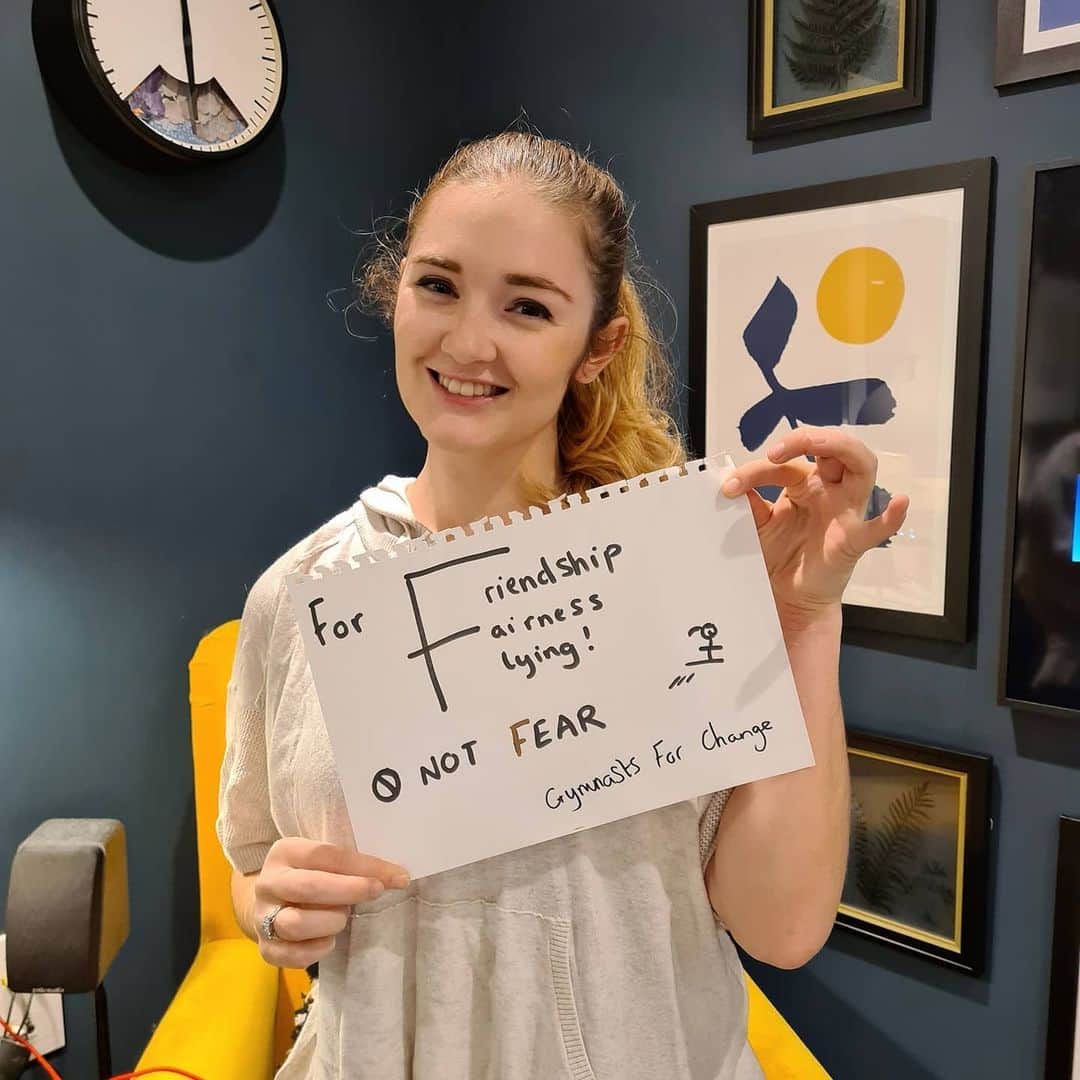 For Friendship
Fairness
Flying!
NOT FEAR
Gymnasts For Change